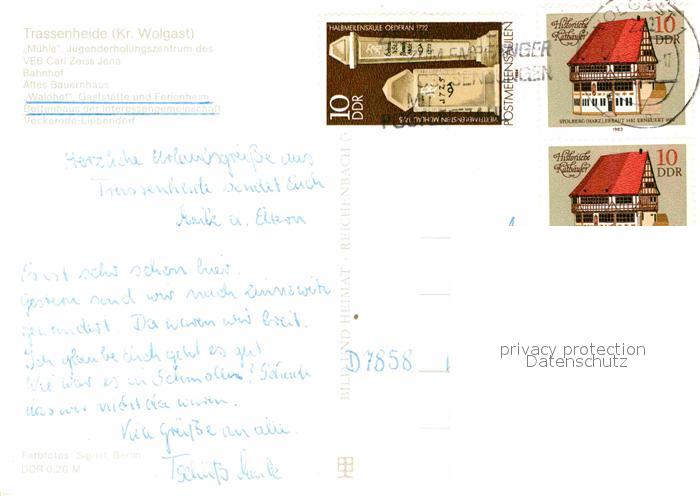 Trassenheide (Kr. Wolgast)
„Mühle“, Jugenderholungszentrum des
VEB Carl Zeiss Jena
Bahnhof
Altes Bauernhaus
„Waldhof“, Gaststätte und Ferienheim
Bettenhaus der Interessengemeinschaft
Veckerode-Lippendorf
Herzliche Urlaubsgrüße aus
Trassenheide sendet Euch
Maik u. Eltern
Es ist sehr schön hier.
Gestern sind wir nach Zinnowitz
gewandert. Da waren wir breit.
Ich glaube Euch geht es gut
Wie war es in Schmölln? Schade
das wir nicht da waren.
Viele Grüße an alle.
Tschüß Maik
Farbfotos: Sigrist, Berlin
DDR 0,20 M
BILD UND HEIMAT · REICHENBACH
HALBMEILENSÄULE OEDERAN 1722
VIERTELMEILENSTEIN MÜHLAU 1725
POSTMEILENSÄULEN
10
DDR
EMPFÄNGER
WOLGAST
Historische
Rathäuser
10
DDR
STOLBERG (HARZ) ERBAUT 1482 ERNEUERT 1600
1983
Historische
Rathäuser
10
DDR
D7858
privacy protection
Datenschutz